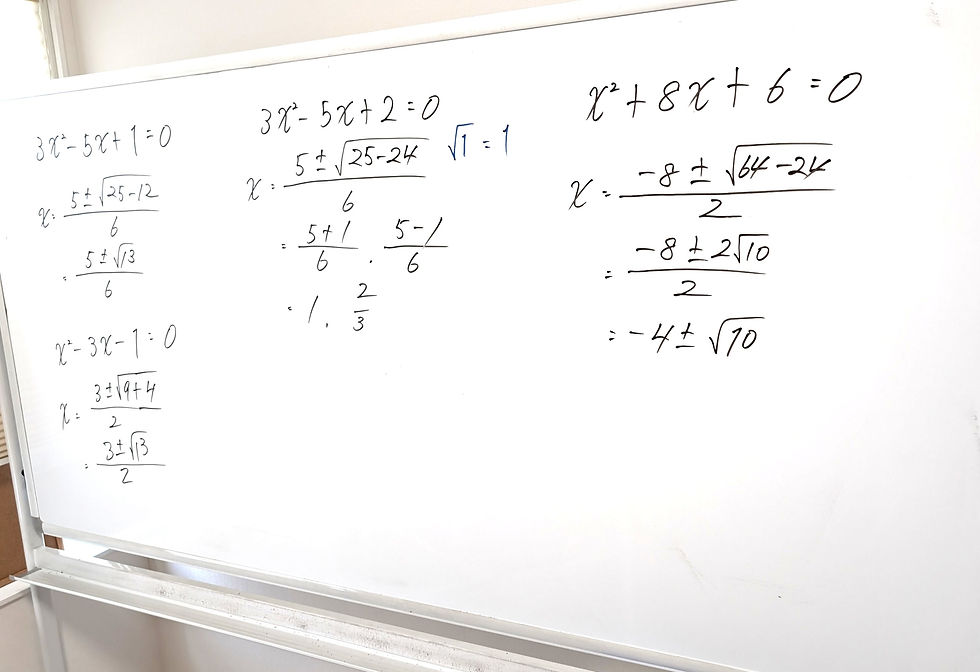 3x²-5x+1=0
x=(5±√(25-12))/6
=(5±√13)/6
x²-3x-1=0
x=(3±√(9+4))/2
=(3±√13)/2
3x²-5x+2=0
x=(5±√(25-24))/6 √1=1
=(5+1)/6, (5-1)/6
=1, 2/3
x²+8x+6=0
x=(-8±√(64-24))/2
=(-8±2√10)/2
=-4±√10